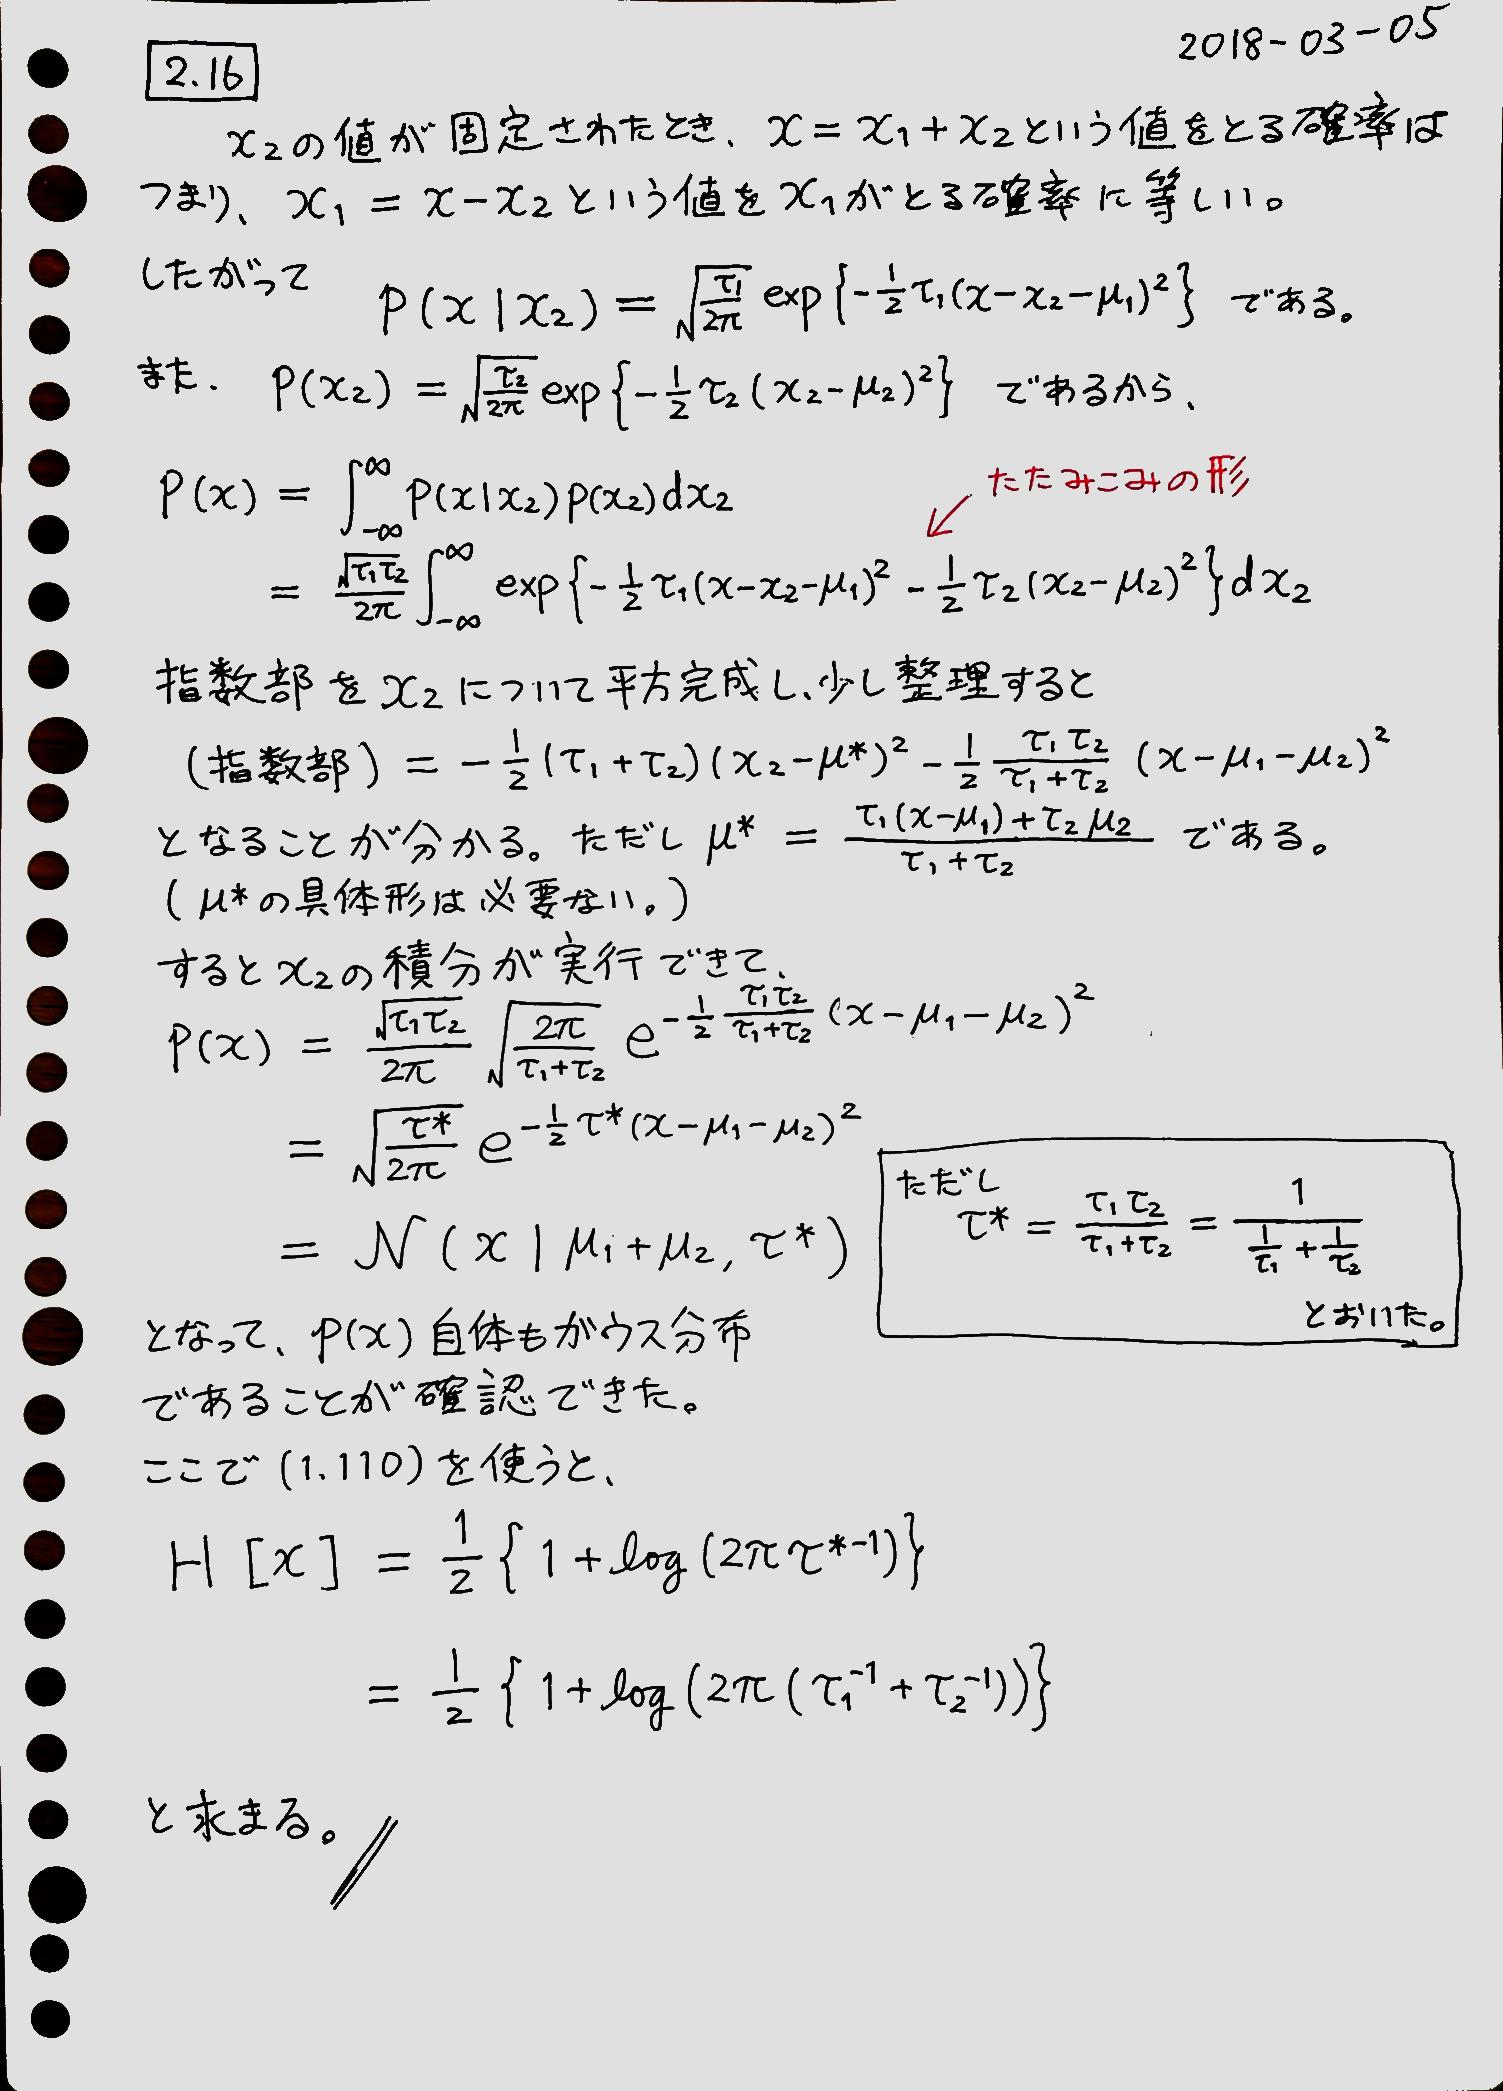 2018-03-05
2.16
x₂の値が固定されたとき、x = x₁ + x₂という値をとる確率は
つまり、x₁ = x - x₂という値をx₁がとる確率に等しい。
したがって P(x|x₂) = √(τ₁/2π) exp{-1/2 τ₁(x-x₂-μ₁)²} である。
また、P(x₂) = √(τ₂/2π) exp{-1/2 τ₂(x₂-μ₂)²} であるから、
P(x) = ∫_{-∞}^{∞} P(x|x₂)p(x₂)dx₂
たたみこみの形
= √(τ₁τ₂)/2π ∫_{-∞}^{∞} exp{-1/2 τ₁(x-x₂-μ₁)² - 1/2 τ₂(x₂-μ₂)²}dx₂
指数部をx₂について平方完成し、少し整理すると
(指数部) = -1/2 (τ₁+τ₂)(x₂-μ*)² - 1/2 τ₁τ₂/(τ₁+τ₂) (x-μ₁-μ₂)²
となることが分かる。ただし μ* = (τ₁(x-μ₁)+τ₂μ₂)/(τ₁+τ₂) である。
(μ*の具体形は必要ない。)
するとx₂の積分が実行できて、
P(x) = √(τ₁τ₂)/2π √(2π/(τ₁+τ₂)) e^{-1/2 τ₁τ₂/(τ₁+τ₂) (x-μ₁-μ₂)²}
= √(τ*/2π) e^{-1/2 τ*(x-μ₁-μ₂)²}
= N(x|μ₁+μ₂, τ*)
ただし
τ* = τ₁τ₂/(τ₁+τ₂) = 1/(1/τ₁ + 1/τ₂)
とおいた。
となって、p(x)自体もガウス分布
であることが確認できた。
ここで(1.110)を使うと、
H[x] = 1/2 {1+log(2πτ*⁻¹)}
= 1/2 {1+log(2π(τ₁⁻¹+τ₂⁻¹))}
と求まる。